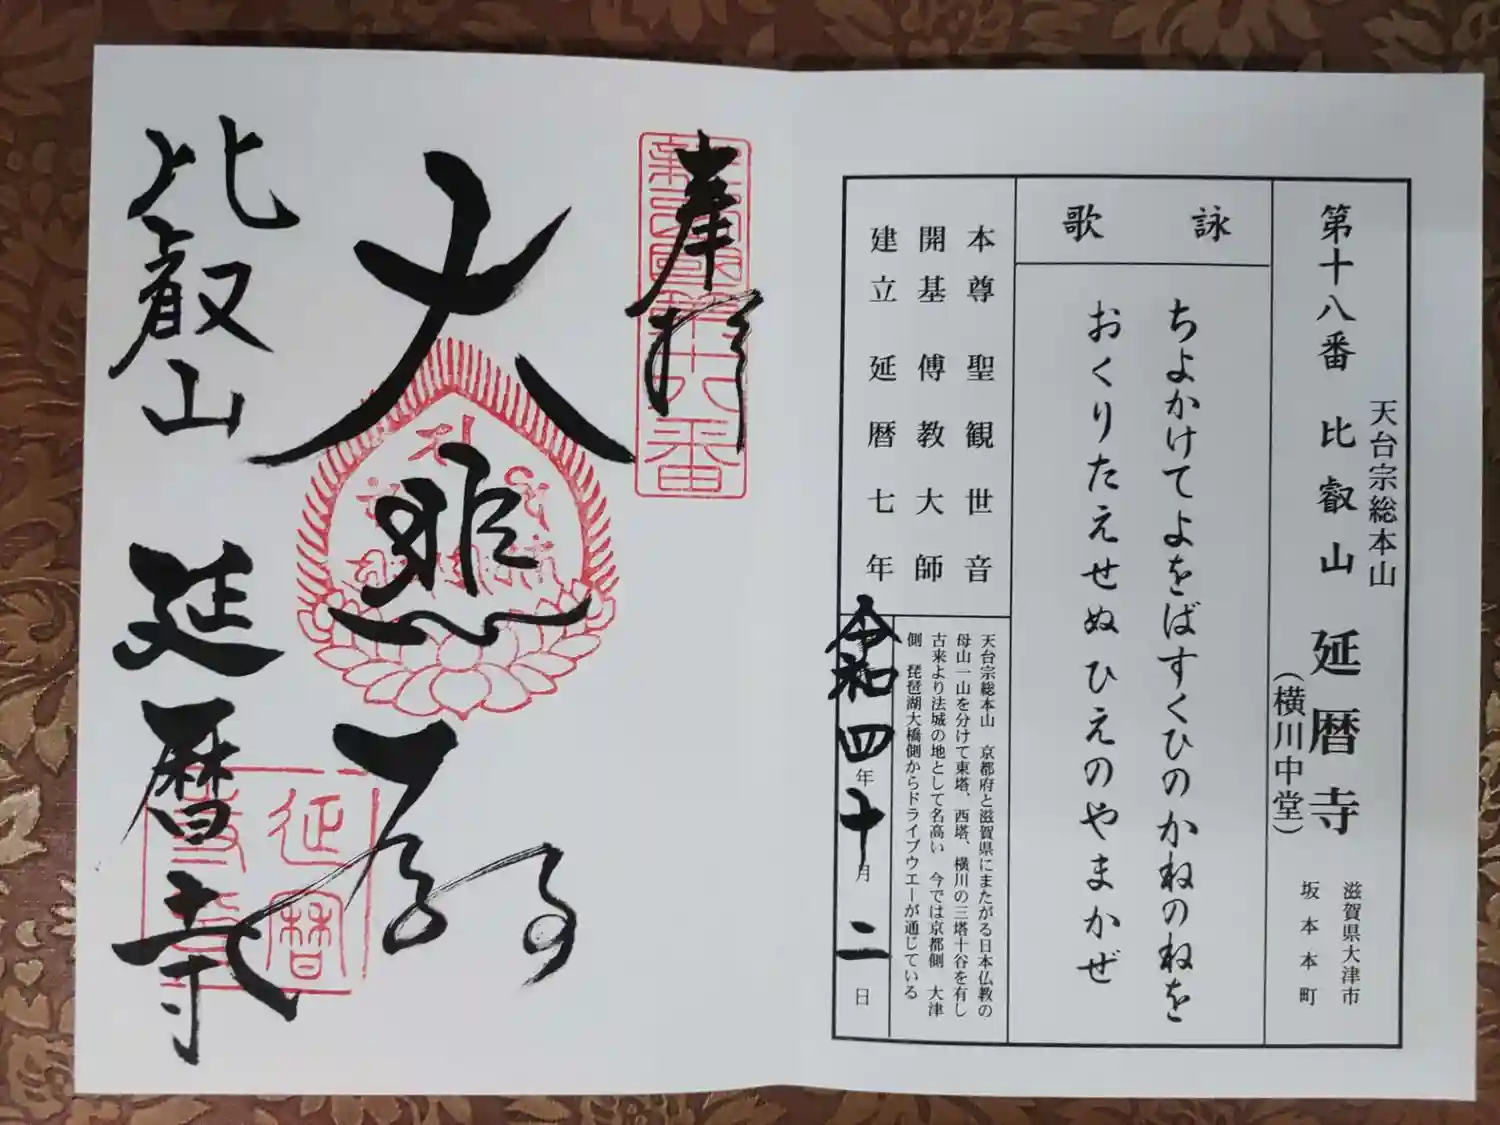 天台宗総本山
第十八番 比叡山 延暦寺
(横川中堂)
滋賀県大津市
坂本本町
詠歌
ちよかけてよをばすくひのかねのねを
おくりたえせぬひえのやまかぜ
本尊 聖観世音
開基 傅教大師
建立 延暦七年
天台宗総本山 京都府と滋賀県にまたがる日本仏教の
母山一山を分けて東塔、西塔、横川の三塔十谷を有し
古来より法城の地として名高い 今では京都側 大津
側 琵琶湖大橋側からドライブウエーが通じている
令和四年十月二日
奉拝
第十八番
大悲殿
比叡山 延暦寺
延暦